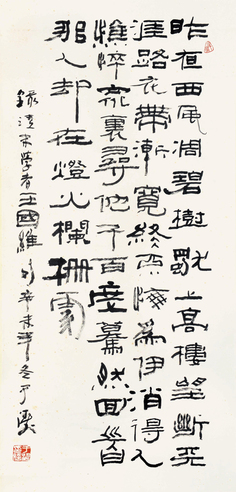 昨夜西風凋碧樹獨上高樓望斷天
涯路衣帶漸寬終不悔為伊消得人
憔悴衆裏尋他千百度驀然回首
那人却在燈火欄栅處
錄清末學者王國維句辛未年冬